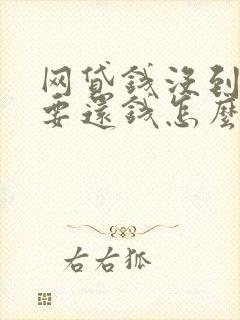 网贷钱没到
要還钱怎麼
右右狐